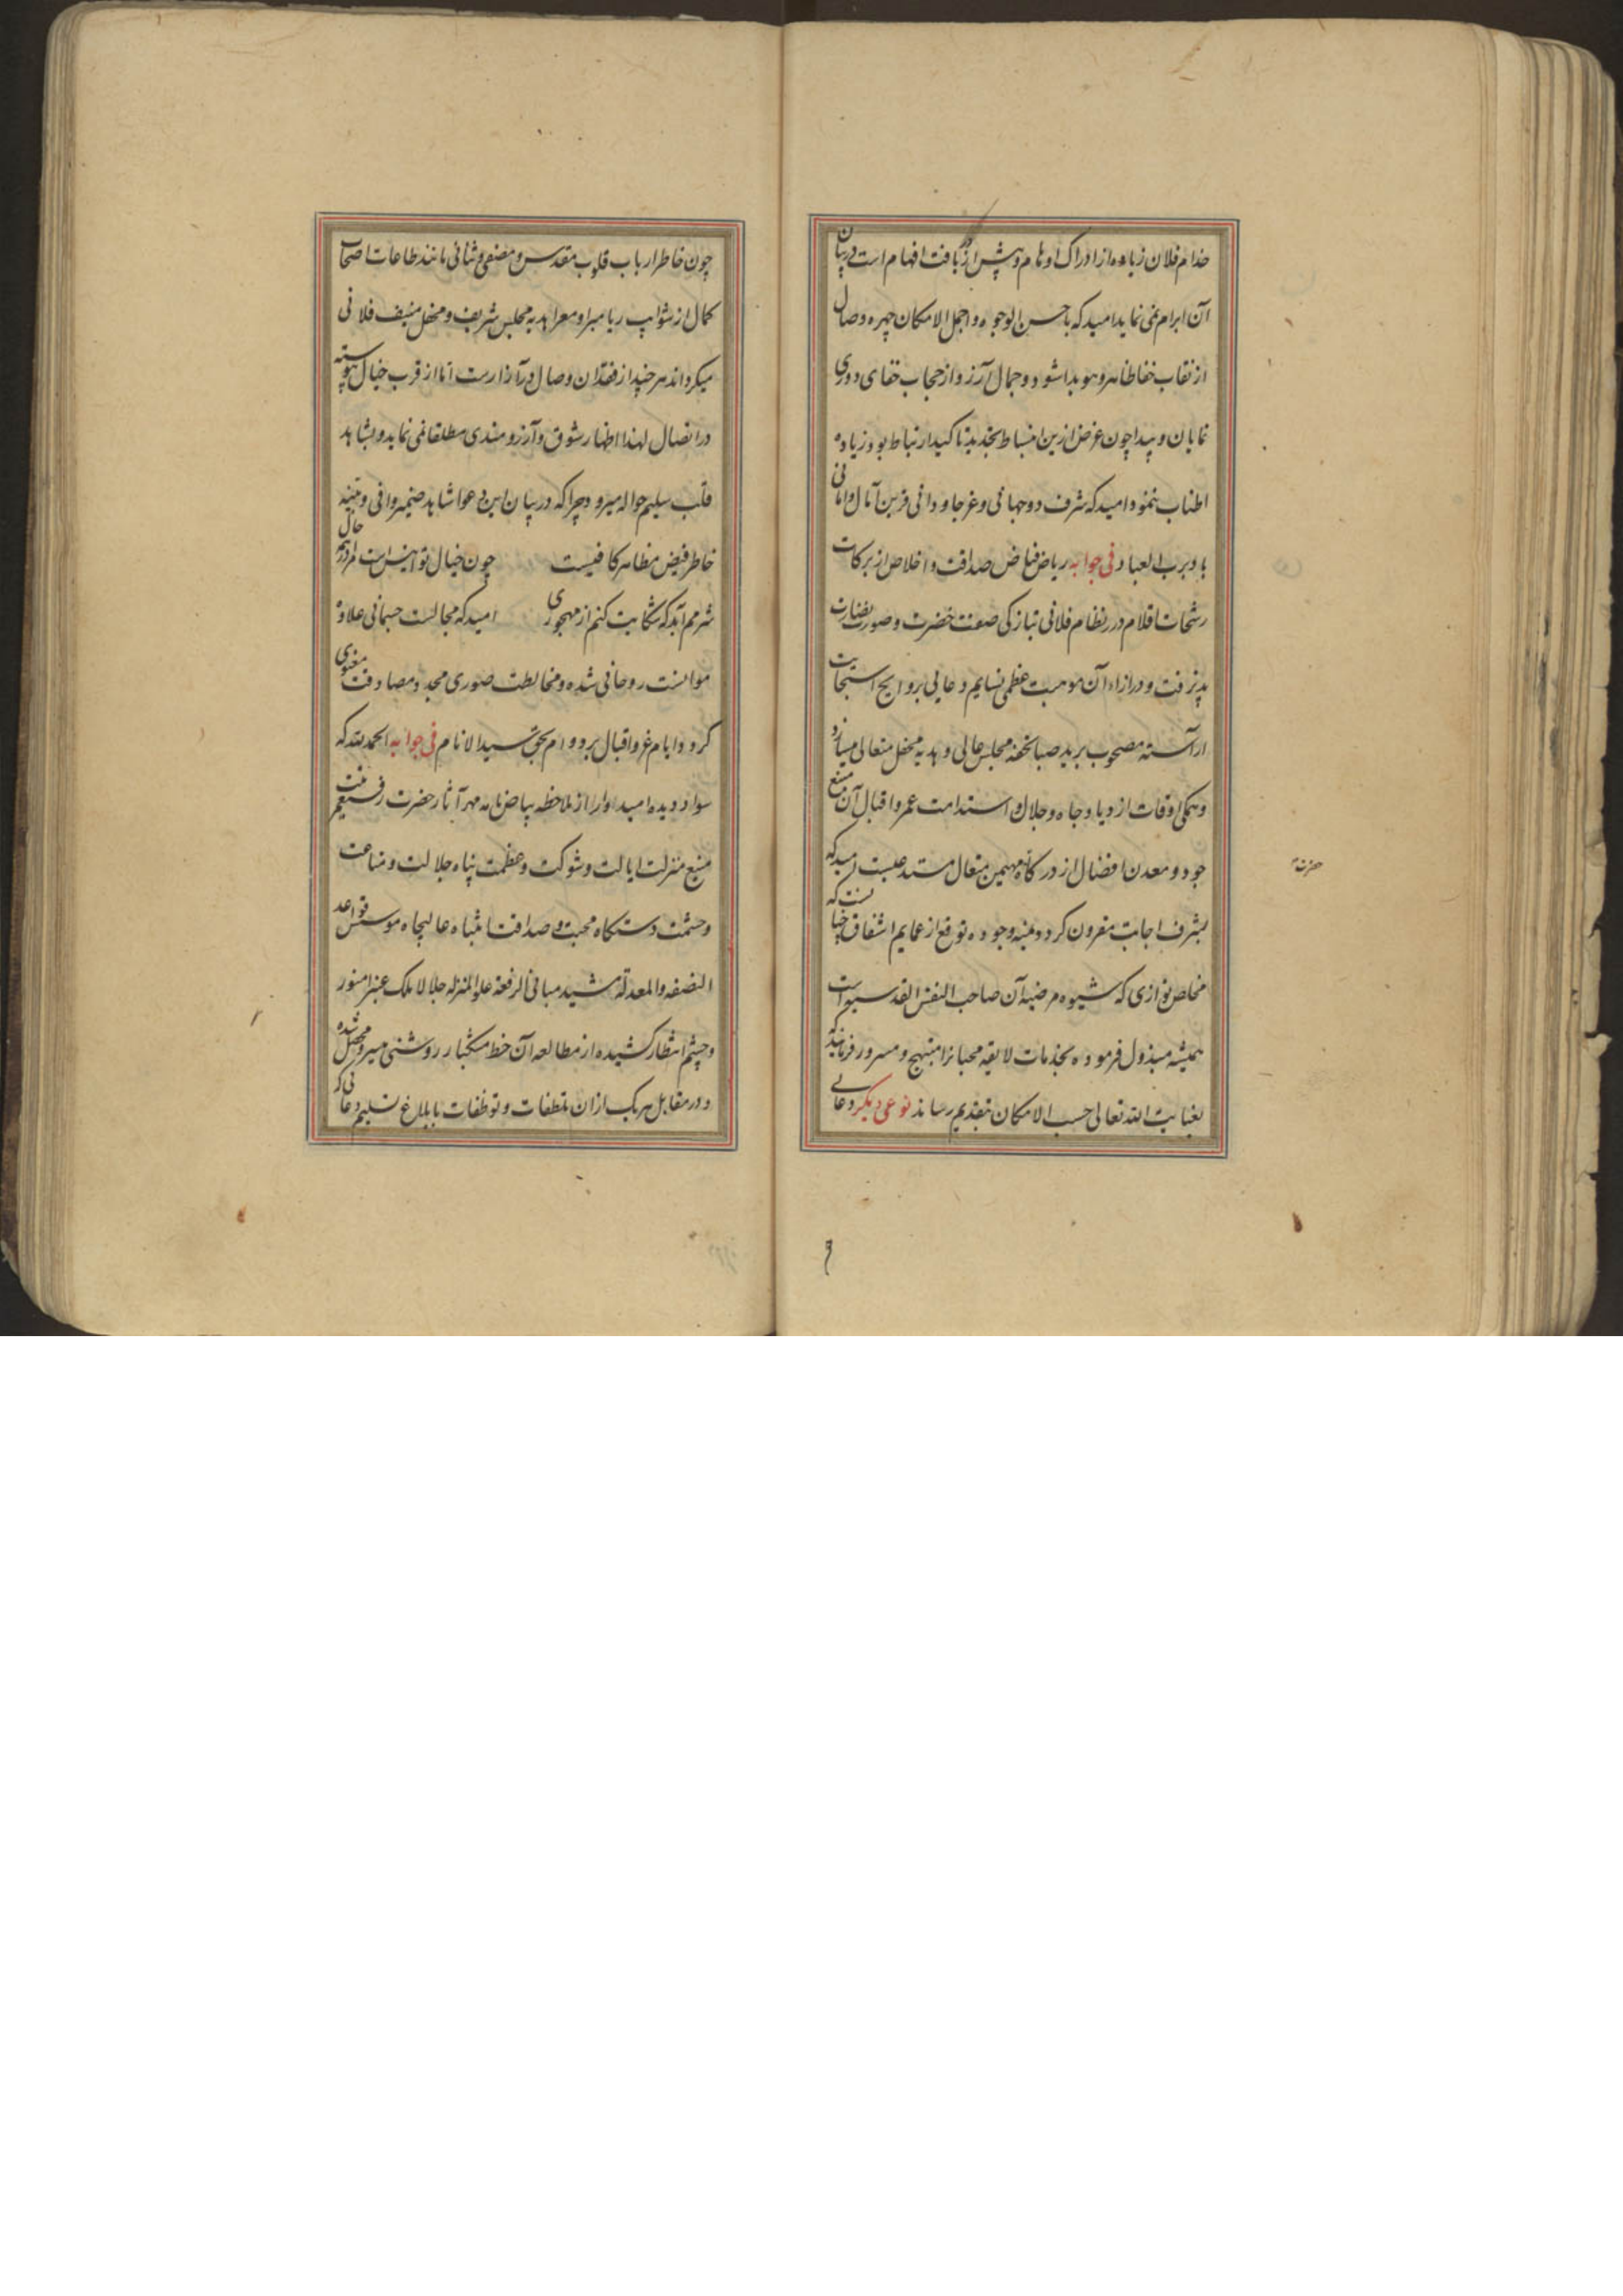 خدام فلان زیاده از ادراک اوهام و بیش از دریافت افهام است در بیان
آن ابرام نمی نماید امید که باحسن الوجوه و اجمل الامکان چهره وصال
از نقاب خفا ظاهر و هویدا شود و جمال آرزو از حجاب خفای دوری
نمایان و پیدا چون غرض ازین انبساط تجدید تاکید ارتباط بود زیاده
اطناب ننمود امید که شرف دو جهانی و عز جاودانی قرین آمال و امانی
باد برب العباد فی جوابه ریاض فیاض صداقت و اخلاص از برکات
رشحات اقلام درر نظام فلانی بتازگی صفت خضرت و صورت نضارت
پذیرفت و در ازاء آن موهبت عظمی نسایم دعایی بروایح استجابت
اراسته مصحوب برید صبا تحفه مجلس عالی و هدیه محفل متعالی میسازد
و همگی اوقات ازدیاد جاه و جلال و استدامت عمر و اقبال آن منبع
جود و معدن افضال از درگاه مهیمن متعال مستدعیست امید که
بشرف اجابت مقرون گردد بمنه وجوده توقع از عمایم اشفاق چنانست که
مخلص نوازی که شیوه مرضیه آن صاحب النفس القدسیه است
همیشه مبذول فرموده بخدمات لایقه محبانرا مبتهج و مسرور فرمایند که
بعنایت الله تعالی حسب الامکان بتقدیم رساند نوعی دیگر دعایی
حضرت
چون خاطر ارباب قلوب مقدس و مصفی و ثنائی مانند طاعات اصحاب
کمال از شوایب ریا مبرا و معرا هدیه مجلس شریف و محفل منیف فلانی
میگرداند هر چند از فقدان وصال در آزارست اما از قرب خیال پیوسته
در اتصال لهذا اظهار شوق و آرزومندی مطلقا نمی نماید و بشاهد
قلب سلیم حواله میرود چرا که در بیان این دعوا شاهد ضمیر وافی و بینه
خاطر فیض مظاهر کافیست چون خیال تو انیس است مرا در همه حال
شرمم آید که شکایت کنم از مهجوری امید که مجالست جسمانی علاوه
موانست روحانی شده و مخالطت صوری مجدد مصادقت معنوی
گردد و ایام عز و اقبال بر دوام بحق سید الانام فی جوابه الحمد لله که
سواد دیده امیداوار از ملاحظه بیاض نامه مهر آثار حضرت رفیع
منیع منزلت ایالت و شوکت و عظمت پناه جلالت و مناعت
و حشمت دستگاه محبت و صداقت انتباه عالیجاه موسس قواعد
النصفه والمعدله مشید مبانی الرفعة علو المنزله جلالا ملک عنبرا منور
و چشم انتظار کشیده از مطالعه آن خط مشکبار روشنی میسر و محصل شده
و در مقابل هریک ازان تلطفات و توظفات بابلاغ تسلیم دعائی که